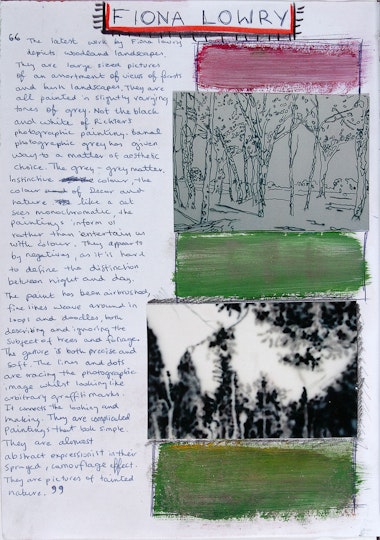 FIONA LOWRY
66 The latest work by Fiona Lowry
depicts woodland landscapes.
They are large sized pictures
of an assortment of views of forests
and bush landscapes. They are
all painted in slightly varying
tones of grey. Not the black
and white of Richter's
photographic painting. Banal
photographic grey has given
way to a matter of aesthetic
choice. The grey - grey matter.
Instinctive colour. The
colour of Decay and
nature like a cat
seen monochromatic, the
paintings inform us
rather than entertain us
with colour. They appear to
by negatives, as it is hard
to define the distinction
between night and day.
The paint has been airbrushed,
fine lines weave around in
loops and doodles, both
describing and ignoring the
subject of trees and foliage.
The gesture is both precise and
soft. The lines and dots
are tracing the photographic
image whilst looking like
arbitrary graffiti marks.
It connects the looking and
making. They are complicated
Paintings that look simple.
They are almost
abstract expressionist in their
sprayed, camouflage effect.
They are pictures of tainted
nature. 99